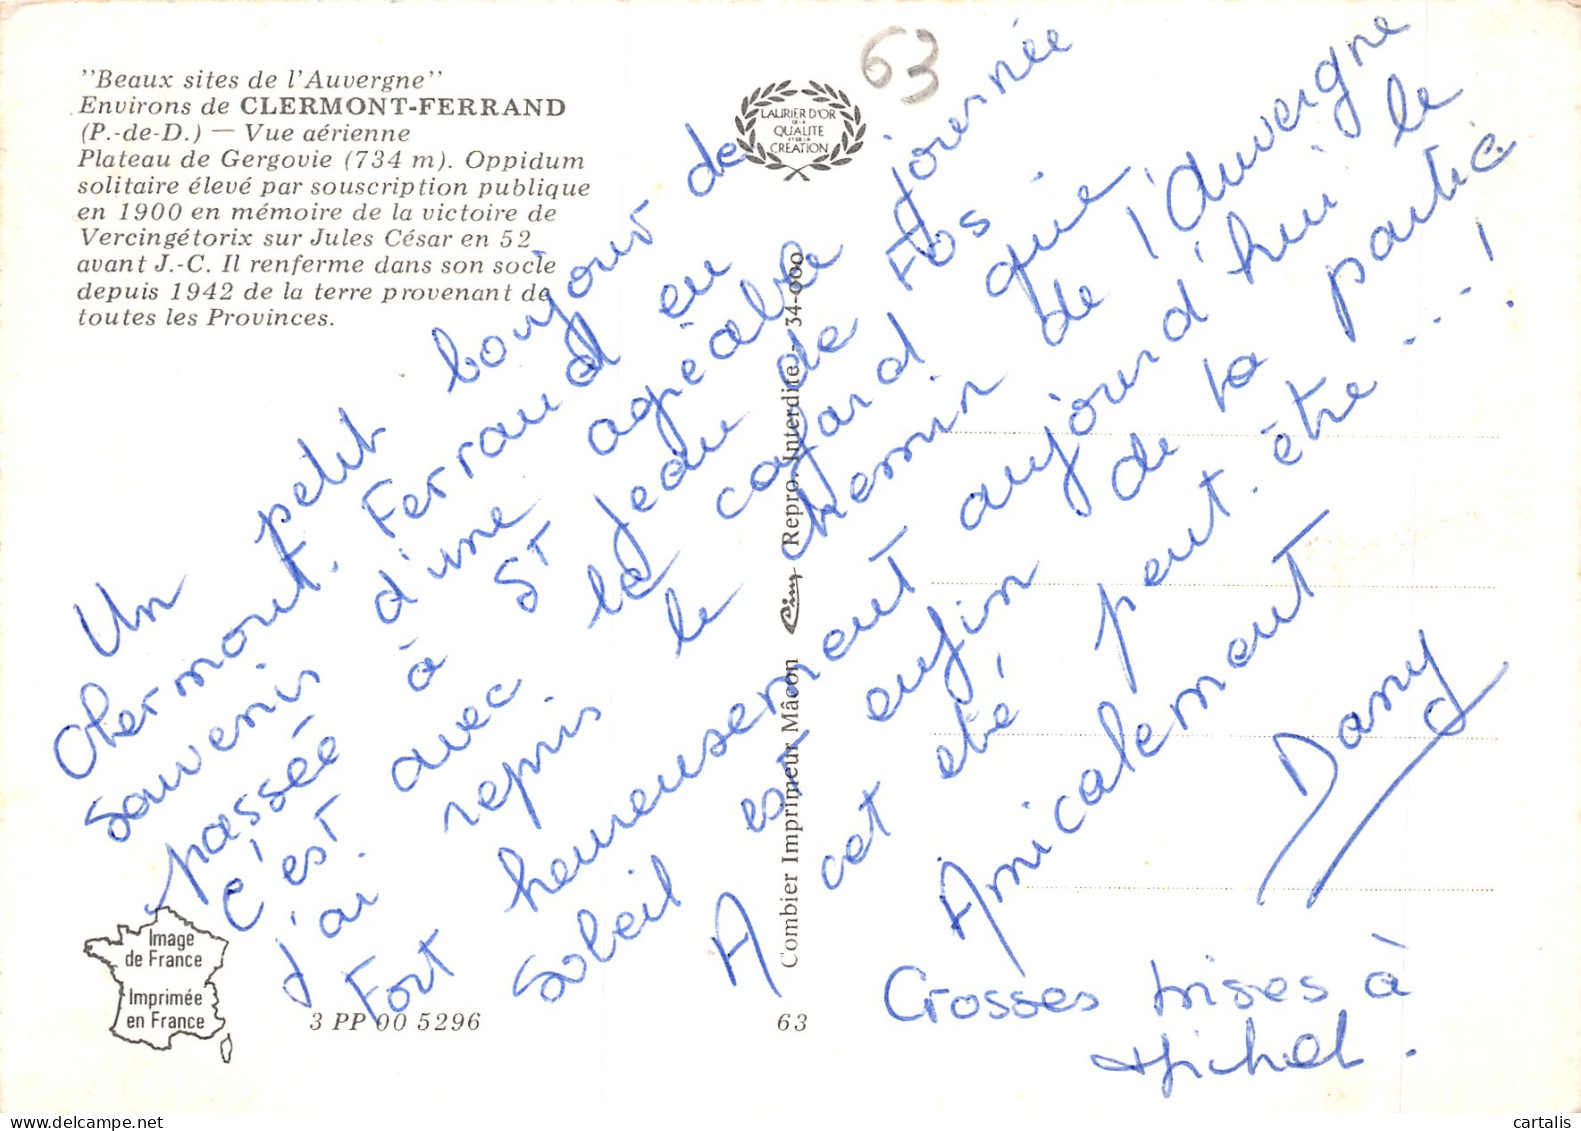 "Beaux sites de l'Auvergne"
Environs de CLERMONT-FERRAND
(P.-de-D.) — Vue aérienne
Plateau de Gergovie (734 m). Oppidum
solitaire élevé par souscription publique
en 1900 en mémoire de la victoire de
Vercingétorix sur Jules César en 52
avant J.-C. Il renferme dans son socle
depuis 1942 de la terre provenant de
toutes les Provinces.
63
LAURIER D'OR
DE LA
QUALITE
ET DE LA
CREATION
Un petit bonjour de
Clermont. Ferrand en
souvenir d'une agréable journée
passée à St Jean de Fos
C'est avec le cafard que
j'ai repris le chemin de l'Auvergne
Fort heureusement aujourd'hui le
soleil est enfin de la partie
A cet été peut.être...!
Amicalement
Dany
Grosses bises à
Michel.
Combier Imprimeur Mâcon Cim Repro. Interdite - 34-000
Image
de France
Imprimée
en France
3 PP 00 5296
63
cartalis